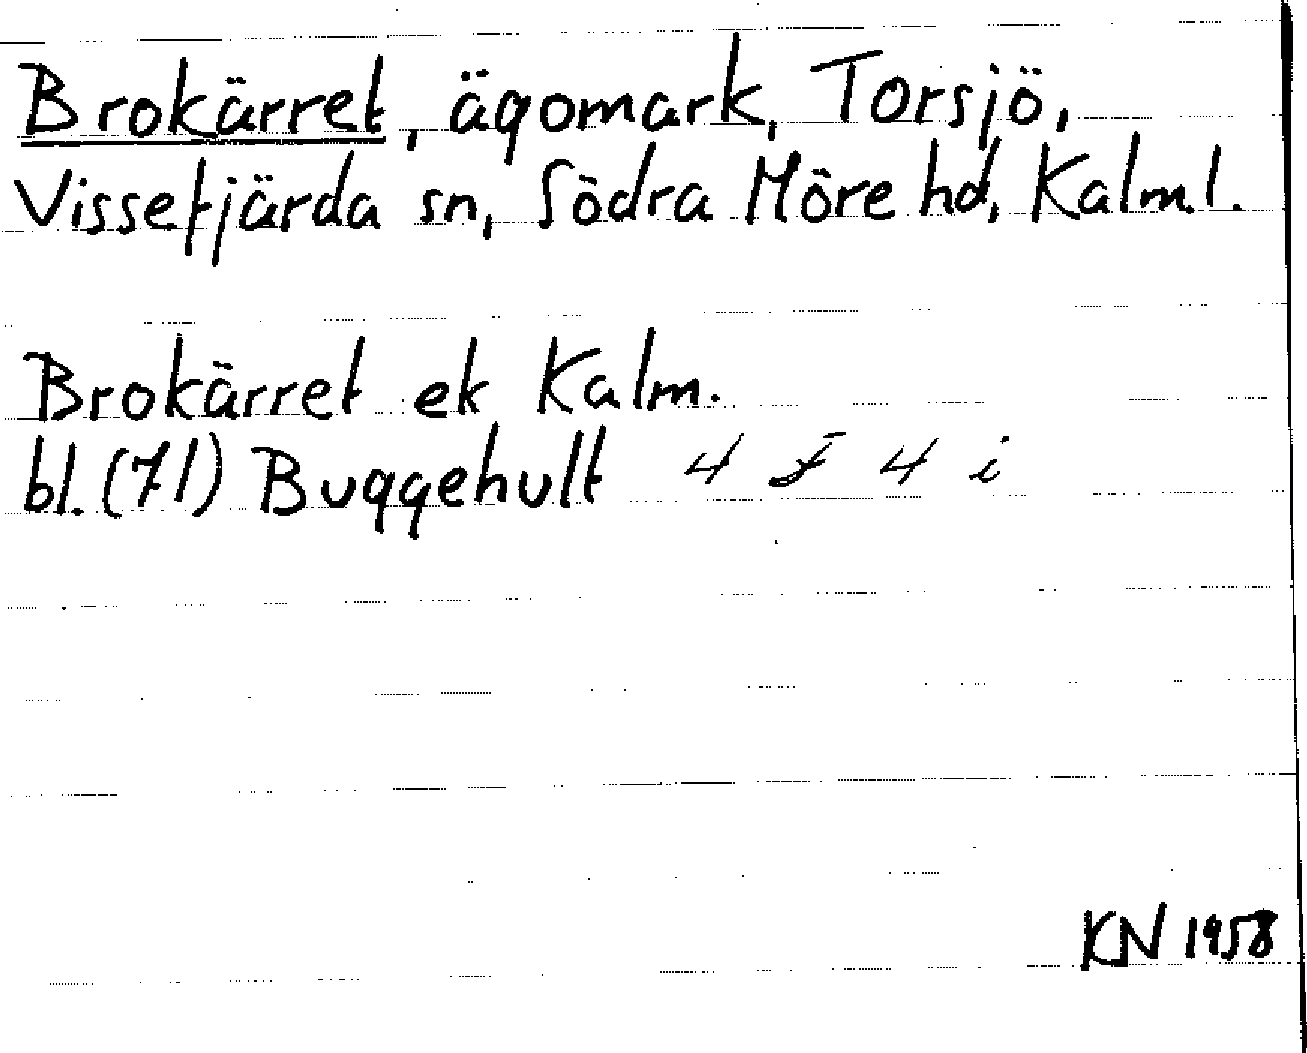 Brokärret, ägomark, Torsjö,
Vissefjärda sn, Södra Möre hd, Kalm l.
Brokärret ek Kalm.
bl. (71) Buggehult 4 F 4 i
KN 1958